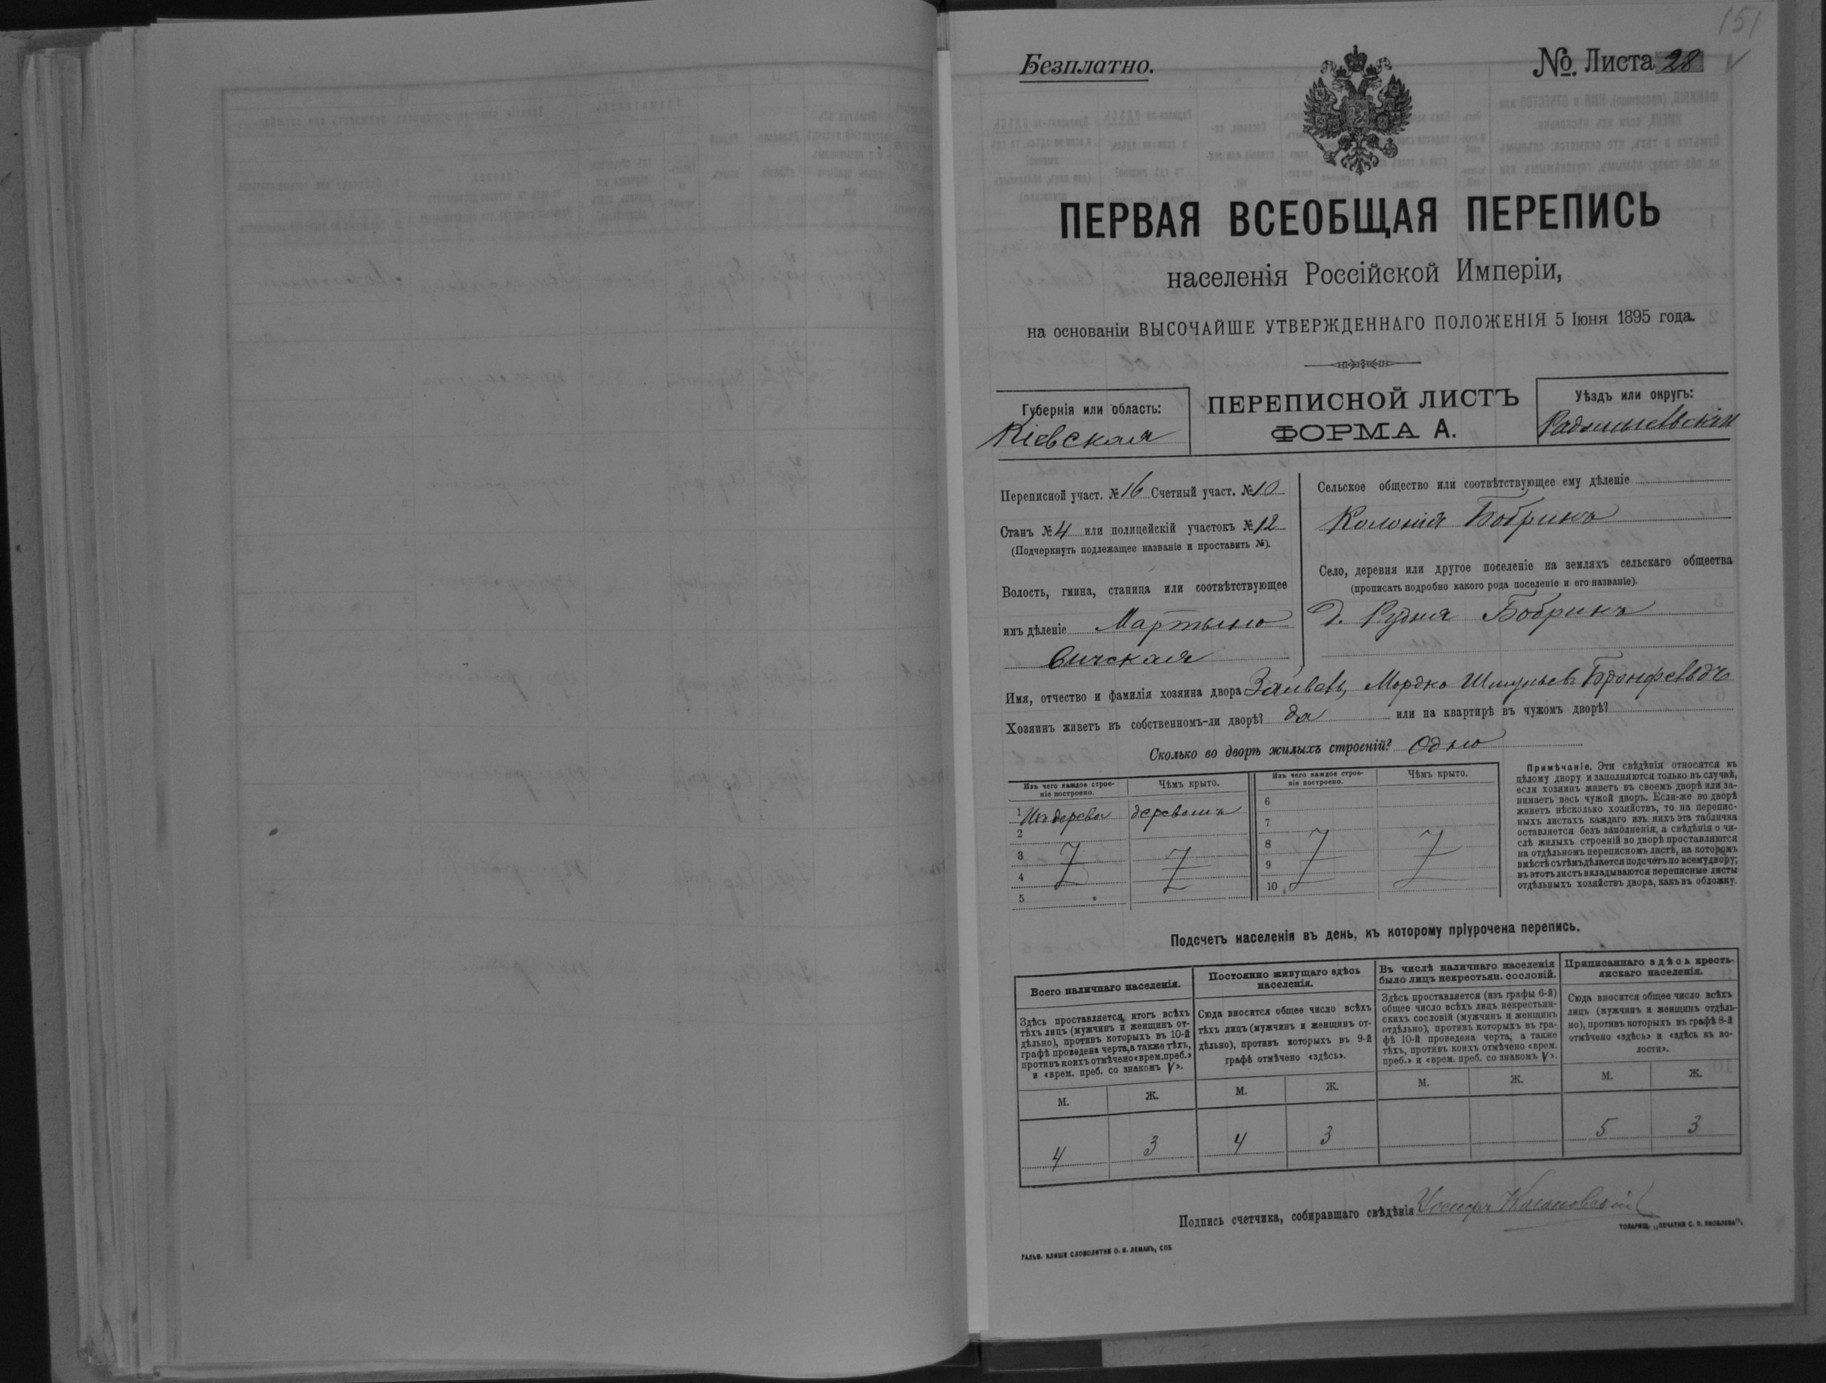 151
Безплатно.
№ Листа 28
ПЕРВАЯ ВСЕОБЩАЯ ПЕРЕПИСЬ
населенія Россійской Имперіи,
на основаніи ВЫСОЧАЙШЕ УТВЕРЖДЕННАГО ПОЛОЖЕНІЯ 5 Іюня 1895 года.
Губернія или область:
Кіевская
ПЕРЕПИСНОЙ ЛИСТЪ
ФОРМА А.
Уѣздъ или округъ:
Радомысльскій
Переписной участ. № 16 Счетный участ. № 10
Станъ № 4 или полицейскій участокъ № 12
(Подчеркнуть подлежащее названіе и проставить №).
Волость, гмина, станица или соотвѣтствующее
имъ дѣленіе Мартыно
вичская
Сельское общество или соотвѣтствующее ему дѣленіе
Колонія Бобрикъ
Село, деревня или другое поселеніе на земляхъ сельскаго общества
(прописать подробно какого рода поселеніе и его названіе).
д. Рудня Бобрикъ
Имя, отчество и фамилія хозяина двора Мордко Шмульевъ Бронфельдъ
Хозяинъ живетъ въ собственномъ-ли дворѣ? да или на квартирѣ въ чужомъ дворѣ?
Сколько во дворѣ жилыхъ строеній? Одно
Изъ чего каждое строе-
ніе построено.
Чѣмъ крыто.
Изъ чего каждое строе-
ніе построено.
Чѣмъ крыто.
1 Изъ дерева деревомъ
2
3
4
5
6
7
8
9
10
Примѣчаніе. Эти свѣдѣнія относятся къ
цѣлому двору и заполняются только въ случаѣ,
если хозяинъ живетъ въ своемъ дворѣ или за-
нимаетъ весь чужой дворъ. Если-же во дворѣ
живетъ нѣсколько хозяйствъ, то на перепис-
ныхъ листахъ каждаго изъ нихъ эта табличка
оставляется безъ заполненія, а свѣдѣнія о чи-
слѣ жилыхъ строеній во дворѣ проставляются
на отдѣльномъ переписномъ листѣ, на которомъ
вмѣстѣ съ тѣмъ дѣлается подсчетъ по всему двору;
въ этотъ листъ вкладываются переписные листы
отдѣльныхъ хозяйствъ двора, какъ въ обложку.
Подсчетъ населенія въ день, къ которому пріурочена перепись.
Всего наличнаго населенія.
Здѣсь проставляется итогъ всѣхъ
тѣхъ лицъ (мужчинъ и женщинъ от-
дѣльно), противъ которыхъ въ 10-й
графѣ проведена черта, а также тѣхъ,
противъ коихъ отмѣчено «врем. преб.»
и «врем. преб. со знакомъ V».
М. Ж.
4 3
Постоянно живущаго здѣсь
населенія.
Сюда вносится общее число всѣхъ
тѣхъ лицъ (мужчинъ и женщинъ от-
дѣльно), противъ которыхъ въ 9-й
графѣ отмѣчено «здѣсь».
М. Ж.
4 3
Въ числѣ наличнаго населенія
было лицъ некрестьян. сословій.
Здѣсь проставляется (изъ графы 6-й)
общее число всѣхъ лицъ некрестьян-
скихъ сословій (мужчинъ и женщинъ
отдѣльно), противъ которыхъ въ гра-
фѣ 10-й проведена черта, а также
тѣхъ, противъ коихъ отмѣчено «врем.
преб.» и «врем. преб. со знакомъ V».
М. Ж.
Приписаннаго здѣсь кресть-
янскаго населенія.
Сюда вносится общее число всѣхъ
лицъ (мужчинъ и женщинъ отдѣль-
но), противъ которыхъ въ графѣ 8-й
отмѣчено «здѣсь» и «здѣсь въ во-
лости».
М. Ж.
5 3
Подпись счетчика, собиравшаго свѣдѣнія
ГАЛЬВ. КЛИШЕ СЛОВОЛИТНИ О. И. ЛЕМАНЪ, СПБ
ТОВАРИЩ. „ПЕЧАТНЯ С. П. ЯКОВЛЕВА".